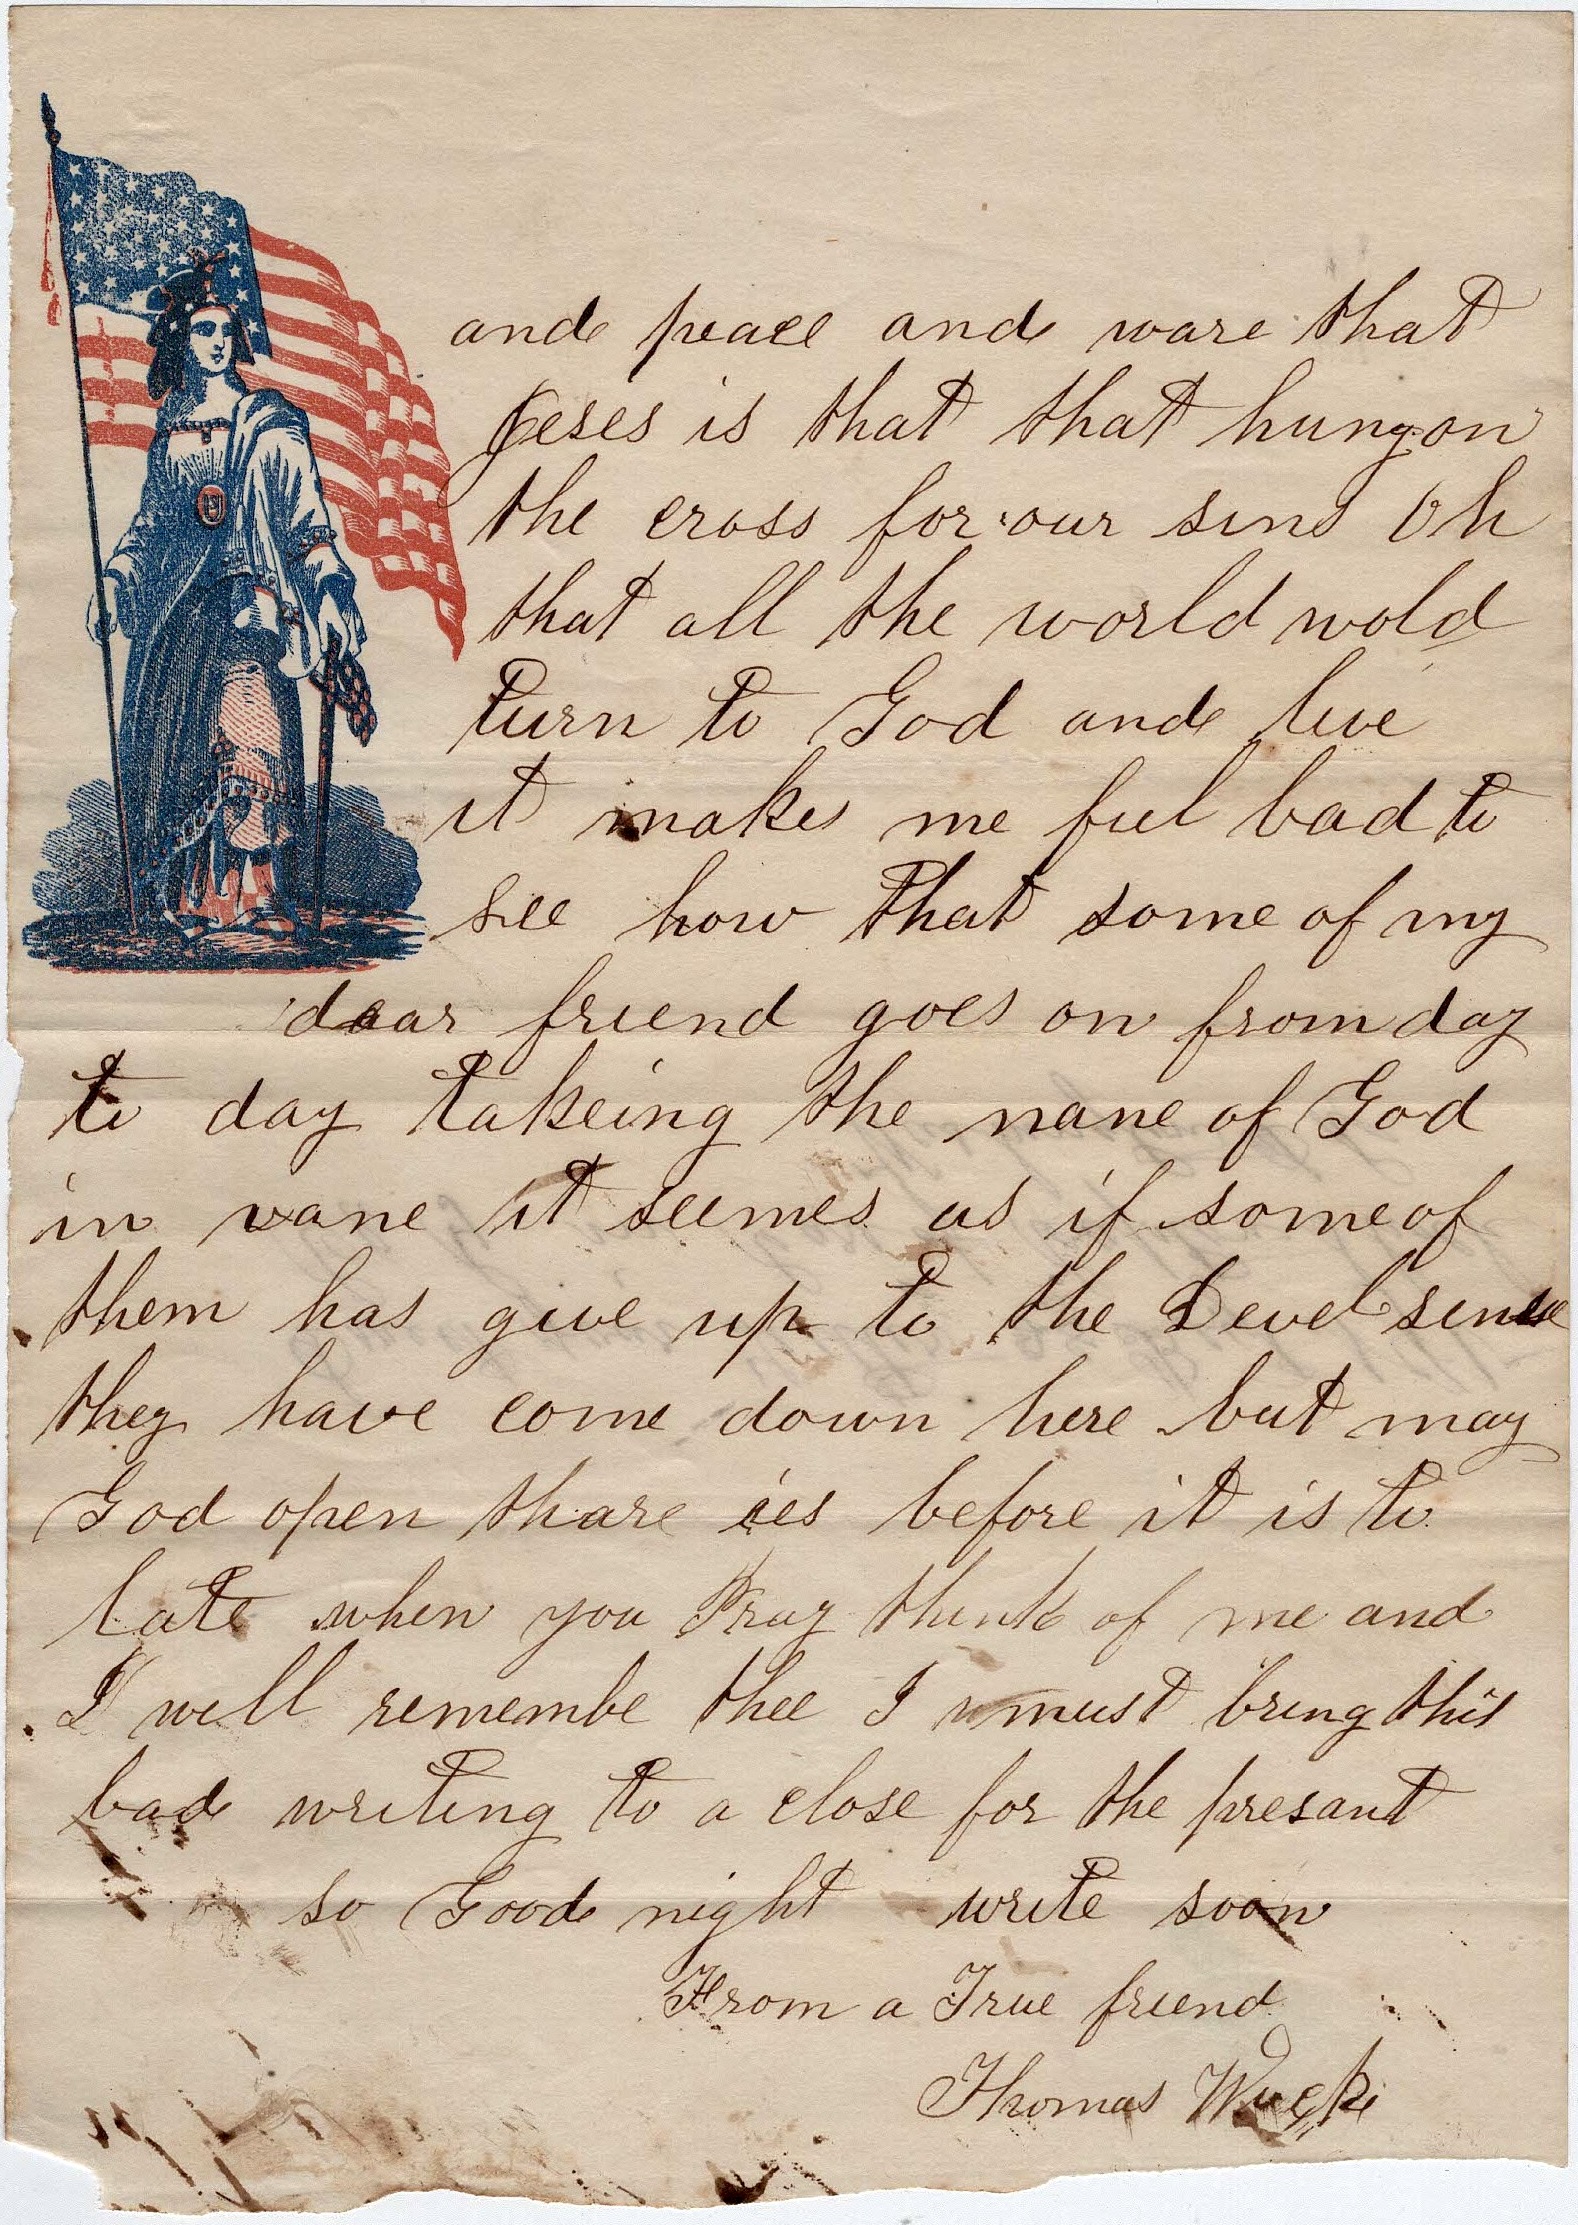 and peace and ware that
Jeses is that that hung on
the cross for our sins Oh
that all the world wold
turn to God and live
it makes me feel bad to
see how that some of my
daar friend goes on from day
to day takeing the nane of God
in vane it seemes as if some of
them has give up to the Devel sinse
they have come down here but may
God open thare ies before it is to
late when you Pray think of me and
I will remembe thee I must bring this
bad writing to a close for the presant
so Good night write soon
From a True friend
Thomas